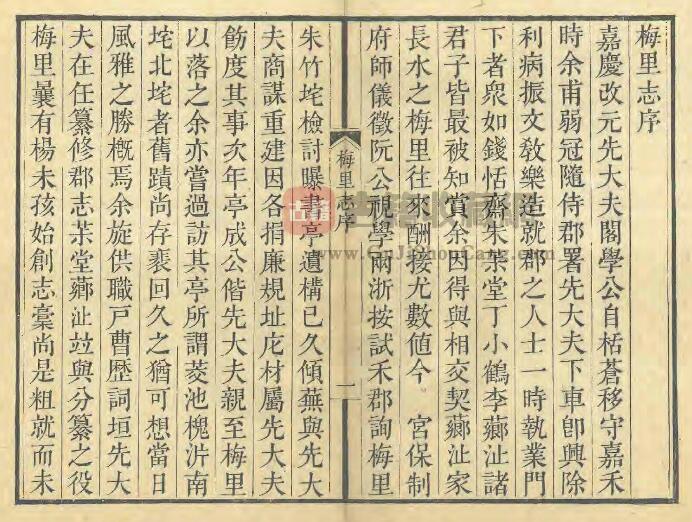 梅里志序
嘉慶改元先大夫閣學公自栝蒼移守嘉禾
時余甫弱冠隨侍郡署先大夫下車卽興除
利病振文敎樂造就郡之人士一時執業門
下者衆如錢恬齋朱茮堂丁小鶴李薌沚諸
君子皆最被知賞余因得與相交契薌沚家
長水之梅里往來酬接尤數値今 宮保制
府師儀徵阮公視學兩浙按試禾郡詢梅里
梅里志序
一
朱竹垞檢討曝書亭遺構已久傾蕪與先大
夫商謀重建因各捐廉規址庀材屬先大夫
飭度其事次年亭成公偕先大夫親至梅里
以落之余亦嘗過訪其亭所謂菱池槐沜南
垞北垞者舊蹟尚存裵回久之猶可想當日
風雅之勝槪焉余旋供職戸曹歷詞垣先大
夫在任纂修郡志茮堂薌沚竝與分纂之役
梅里曩有楊未孩始創志稾尚是粗就而未
www.GuJiShouCang.com